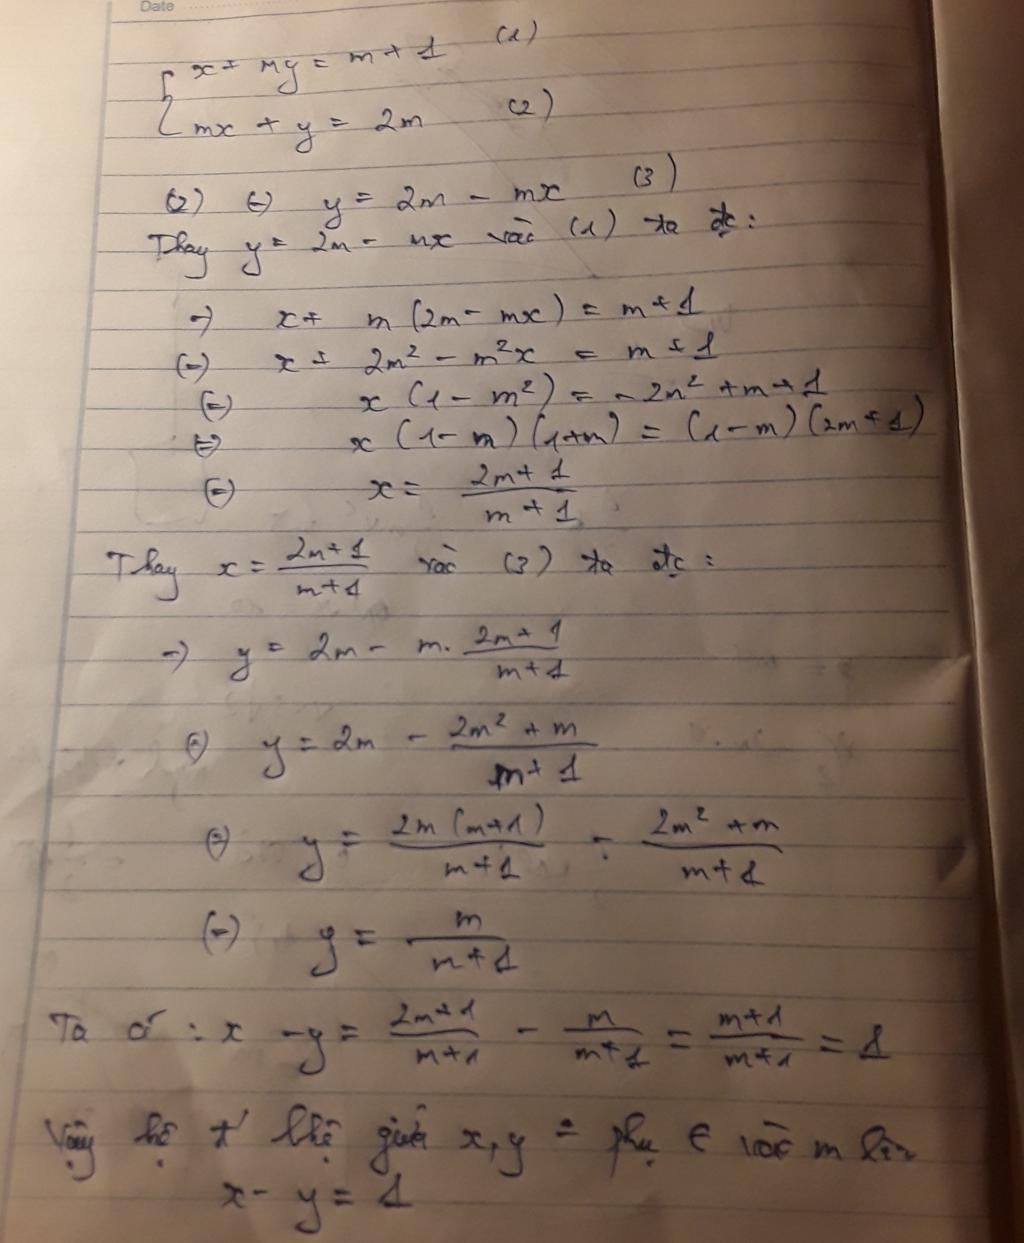 Date
x + my = m + 1 (1)
mx + y = 2m (2)
(2) (=) y = 2m - mx (3)
Thay y = 2m - mx vào (1) ta đc :
=) x + m (2m - mx) = m + 1
(=) x + 2m² - m²x = m + 1
(=) x (1 - m²) = -2m² + m + 1
(=) x (1 - m) (1+m) = (1 - m) (2m + 1)
(=) x = \frac{2m + 1}{m + 1}
Thay x = \frac{2m + 1}{m + 1} vào (3) ta đc :
=) y = 2m - m. \frac{2m + 1}{m + 1}
(=) y = 2m - \frac{2m² + m}{m + 1}
(=) y = \frac{2m (m+1)}{m + 1} - \frac{2m² + m}{m + 1}
(=) y = \frac{m}{m + 1}
Ta có : x - y = \frac{2m + 1}{m + 1} - \frac{m}{m + 1} = \frac{m + 1}{m + 1} = 1
Vậy hệ t' giữa x, y phụ ∈ vào m
x - y = 1